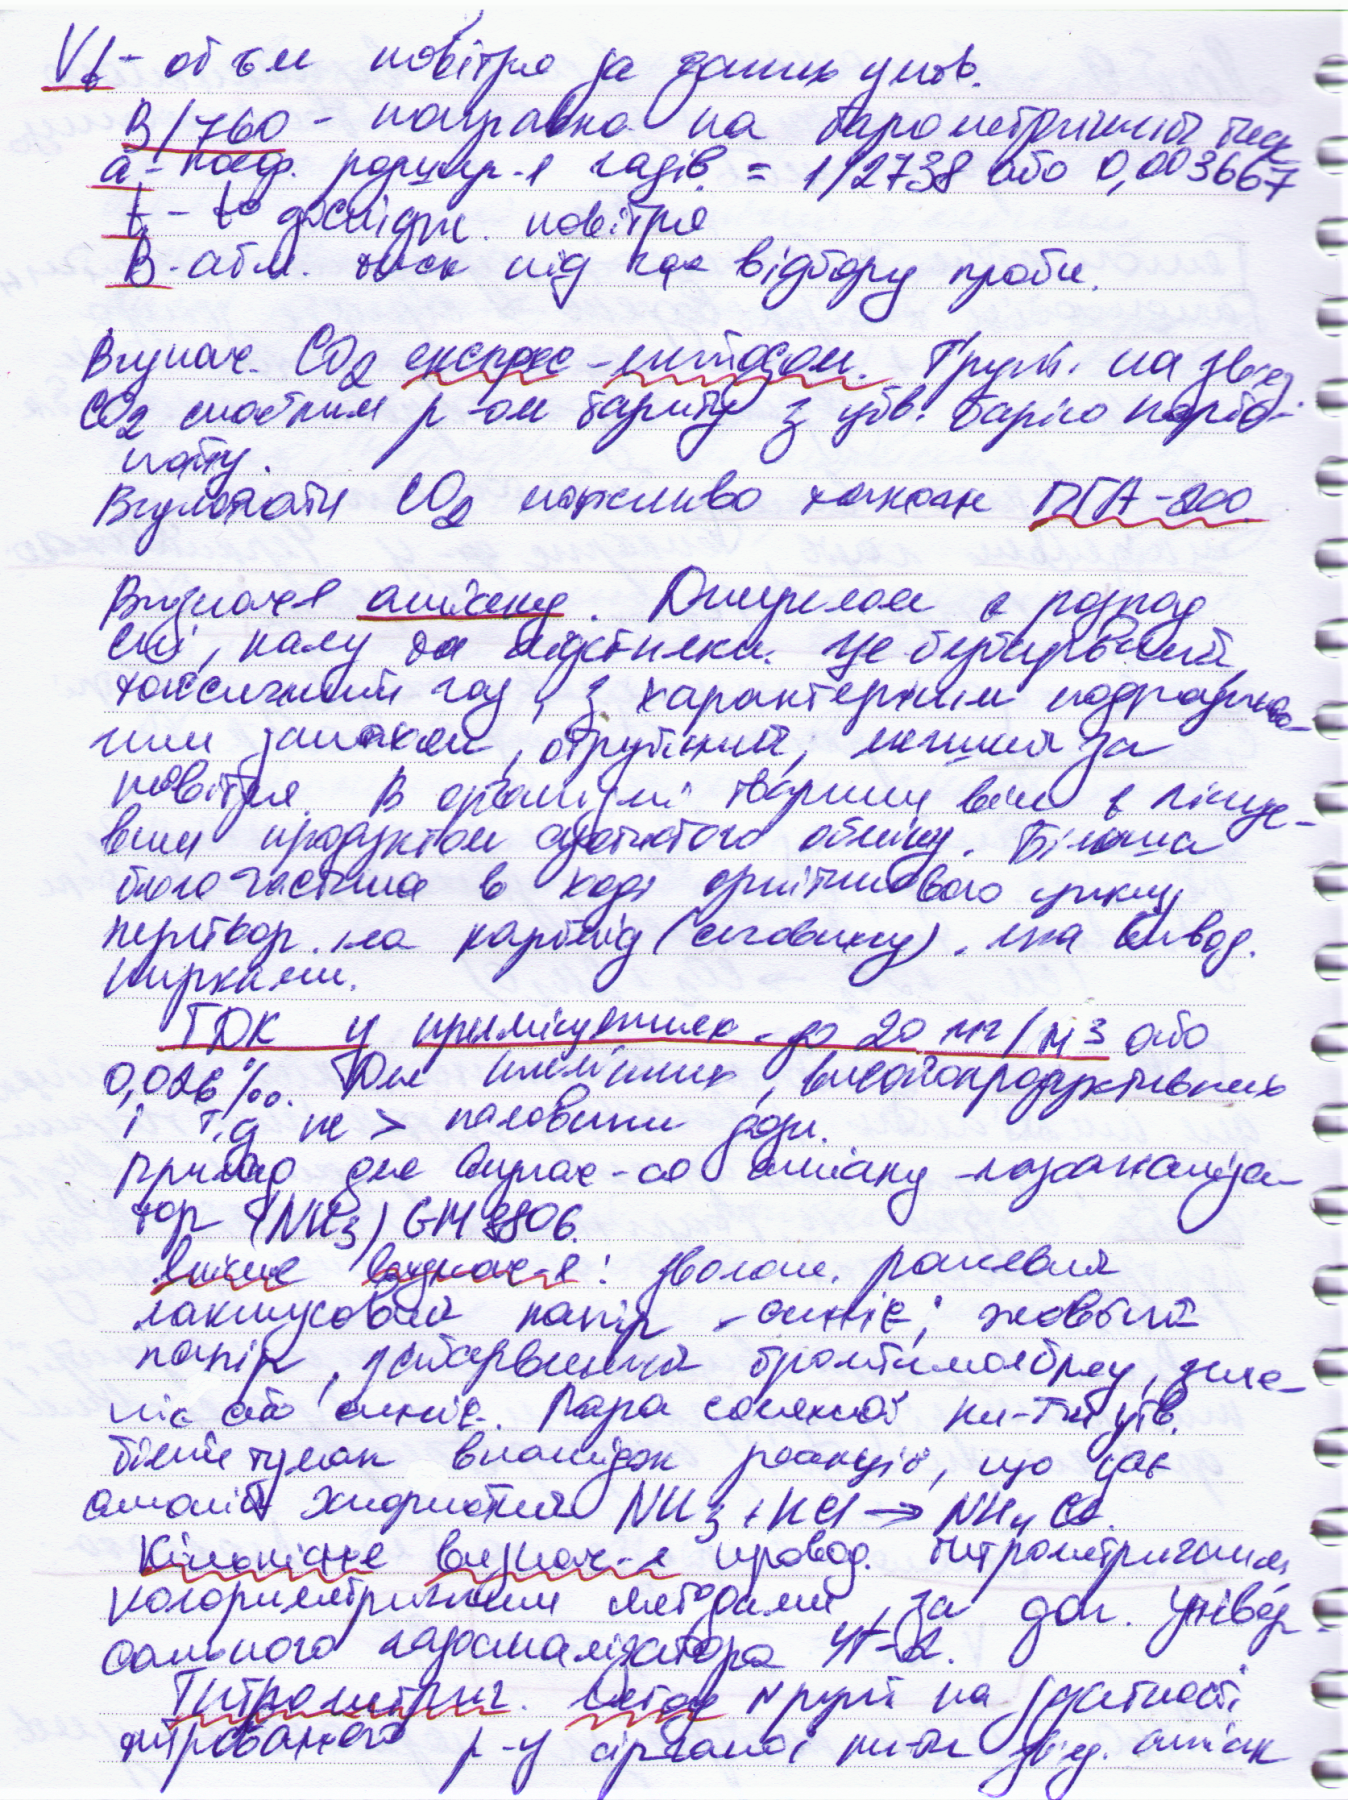 Vt - об'єм повітря за даних умов.
B/760 - поправка на барометричний тиск
a - коеф. розшир-я газів = 1/2738 або 0,003667
t - t° дослідж. повітря
B - атм. тиск під час відбору проби.
Визнач. CO2 експрес-методом. Ґрунт. на звед.
CO2 слабким р-ом бариту з утв. барію карбо-
нату.
Визначати CO2 можливо також ПГА-200
Визнач-я аміаку. Джерелом є розпад
сечі, калу та підстилки. Це безбарвний
токсичний газ, з характерним подразлив-
ним запахом, отруйний, легший за
повітря. В організмі тварини він є кінце-
вим продуктом азотистого обміну. Більша
його частина в ході орнітинового циклу
перетвор. на карбамід (сечовину), яка вивод.
нирками.
ГДК у приміщеннях - до 20 мг/м3 або
0,026‰. Для племінних, високопродуктивних
і т.д не > половини дози.
Прилад для визнач-ня аміаку - газоаналіза-
тор (NH3) GM 8806.
Якісне визнач-я: зволож. рожевий
лакмусовий папір - синіє; жовтий
папір, забарвлений бромтимолблау, зеле-
ніє або синіє. Пара соляної ки-ти утв.
білий туман внаслідок реакції, що дає
амоній хлористий NH3 + HCl → NH4Cl.
Кількісне визнач-я провод. титрометричним,
колориметричним методами, за доп. універ-
сального газоаналізатора УГ-2.
Титрометрич. метод ґрунт на здатності
титрованого р-у сірчаної ки-ти звед. аміак